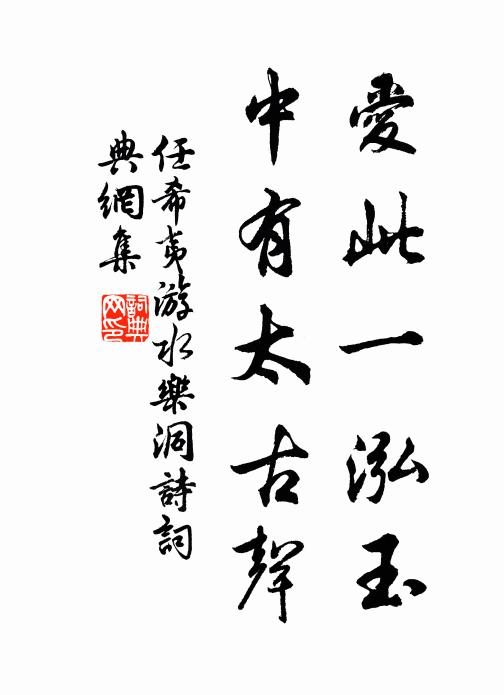 愛此一泓玉
中有太古聲
任希夷游水樂洞詩詞
典網集
詞典
网印